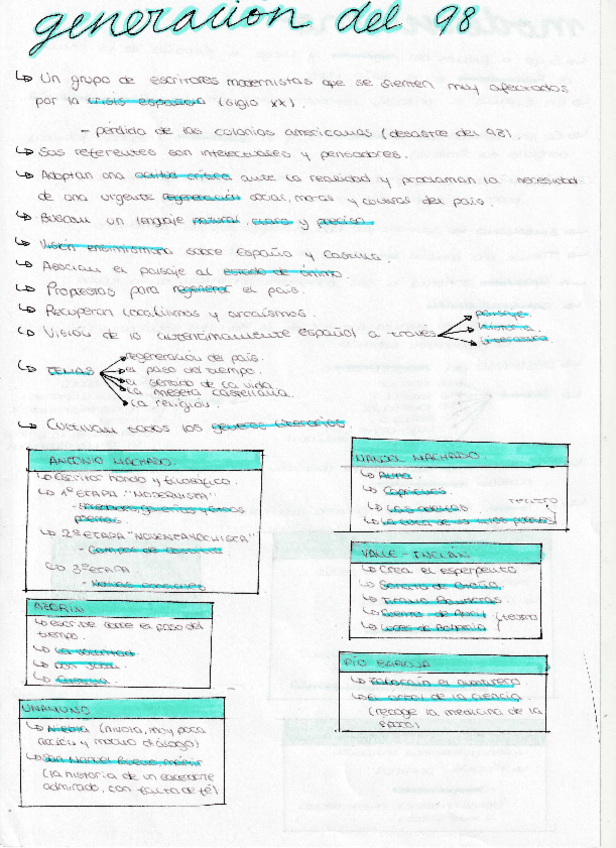 generación del 98
↳ Un grupo de escritores modernistas que se sienten muy afectados
por la crisis española (siglo XX).
- pérdida de las colonias americanas (desastre del 98).
↳ Sus referentes son intelectuales y pensadores.
↳ Adoptan una actitud crítica ante la realidad y proclaman la necesidad
de una urgente regeneración social, moral y cultural del país.
↳ Buscan un lenguaje natural, claro y preciso
↳ Visión ensimismada sobre España y Castilla.
↳ Asocian el paisaje al estado de ánimo.
↳ Propuestas para regenerar el país.
↳ Recuperan localismos y arcaísmos.
↳ Visión de lo auténticamente español a través
paisaje
historia
literatura
↳ TEMAS
regeneración de país.
el paso del tiempo.
el sentido de la vida
la meseta castellana.
la religión.
↳ Cultivan todos los géneros literarios.
ANTONIO MACHADO.
↳ Escritor hondo y filosófico.
↳ 1ª ETAPA "MODERNISTA"
- Soledades, galerías y otros
poemas.
↳ 2ª ETAPA "NOVENTAYOCHISTA"
- Campos de Castilla
↳ 3ª ETAPA
- Nuevas canciones
MANUEL MACHADO.
↳ Alma
↳ Caprichos
↳ Las adelfas
↳ La Lola se va a los puertos
TEATRO
VALLE-INCLÁN
↳ Crea el esperpento
↳ Sonata de
↳ Tirano Banderas
↳
↳ Luces de Bohemia
(teatro
AZORÍN
↳ escribe sobre el paso del
tiempo.
↳ La voluntad
↳ Don Juan
↳
PÍO BAROJA
↳ Zalacaín el aventurero
↳ El árbol de la ciencia
(recoge la medicina de la
época)
UNAMUNO
↳ Niebla (nivola, muy poca
acción y mucho diálogo)
↳ San Manuel Bueno, mártir
(la historia de un sacerdote
admirado, con falta de fé)